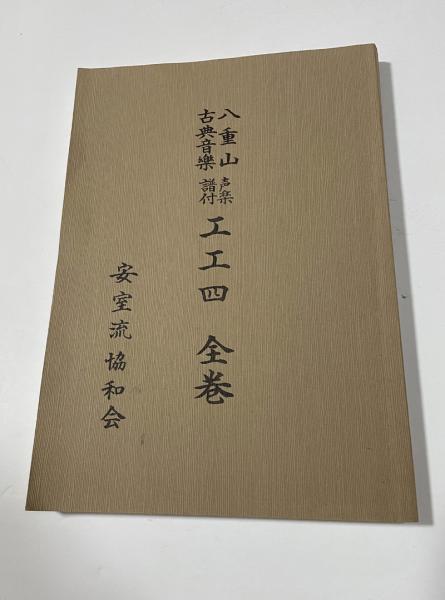 八重山
古典音樂
声楽
譜付
工工四 全巻
安室流協和会